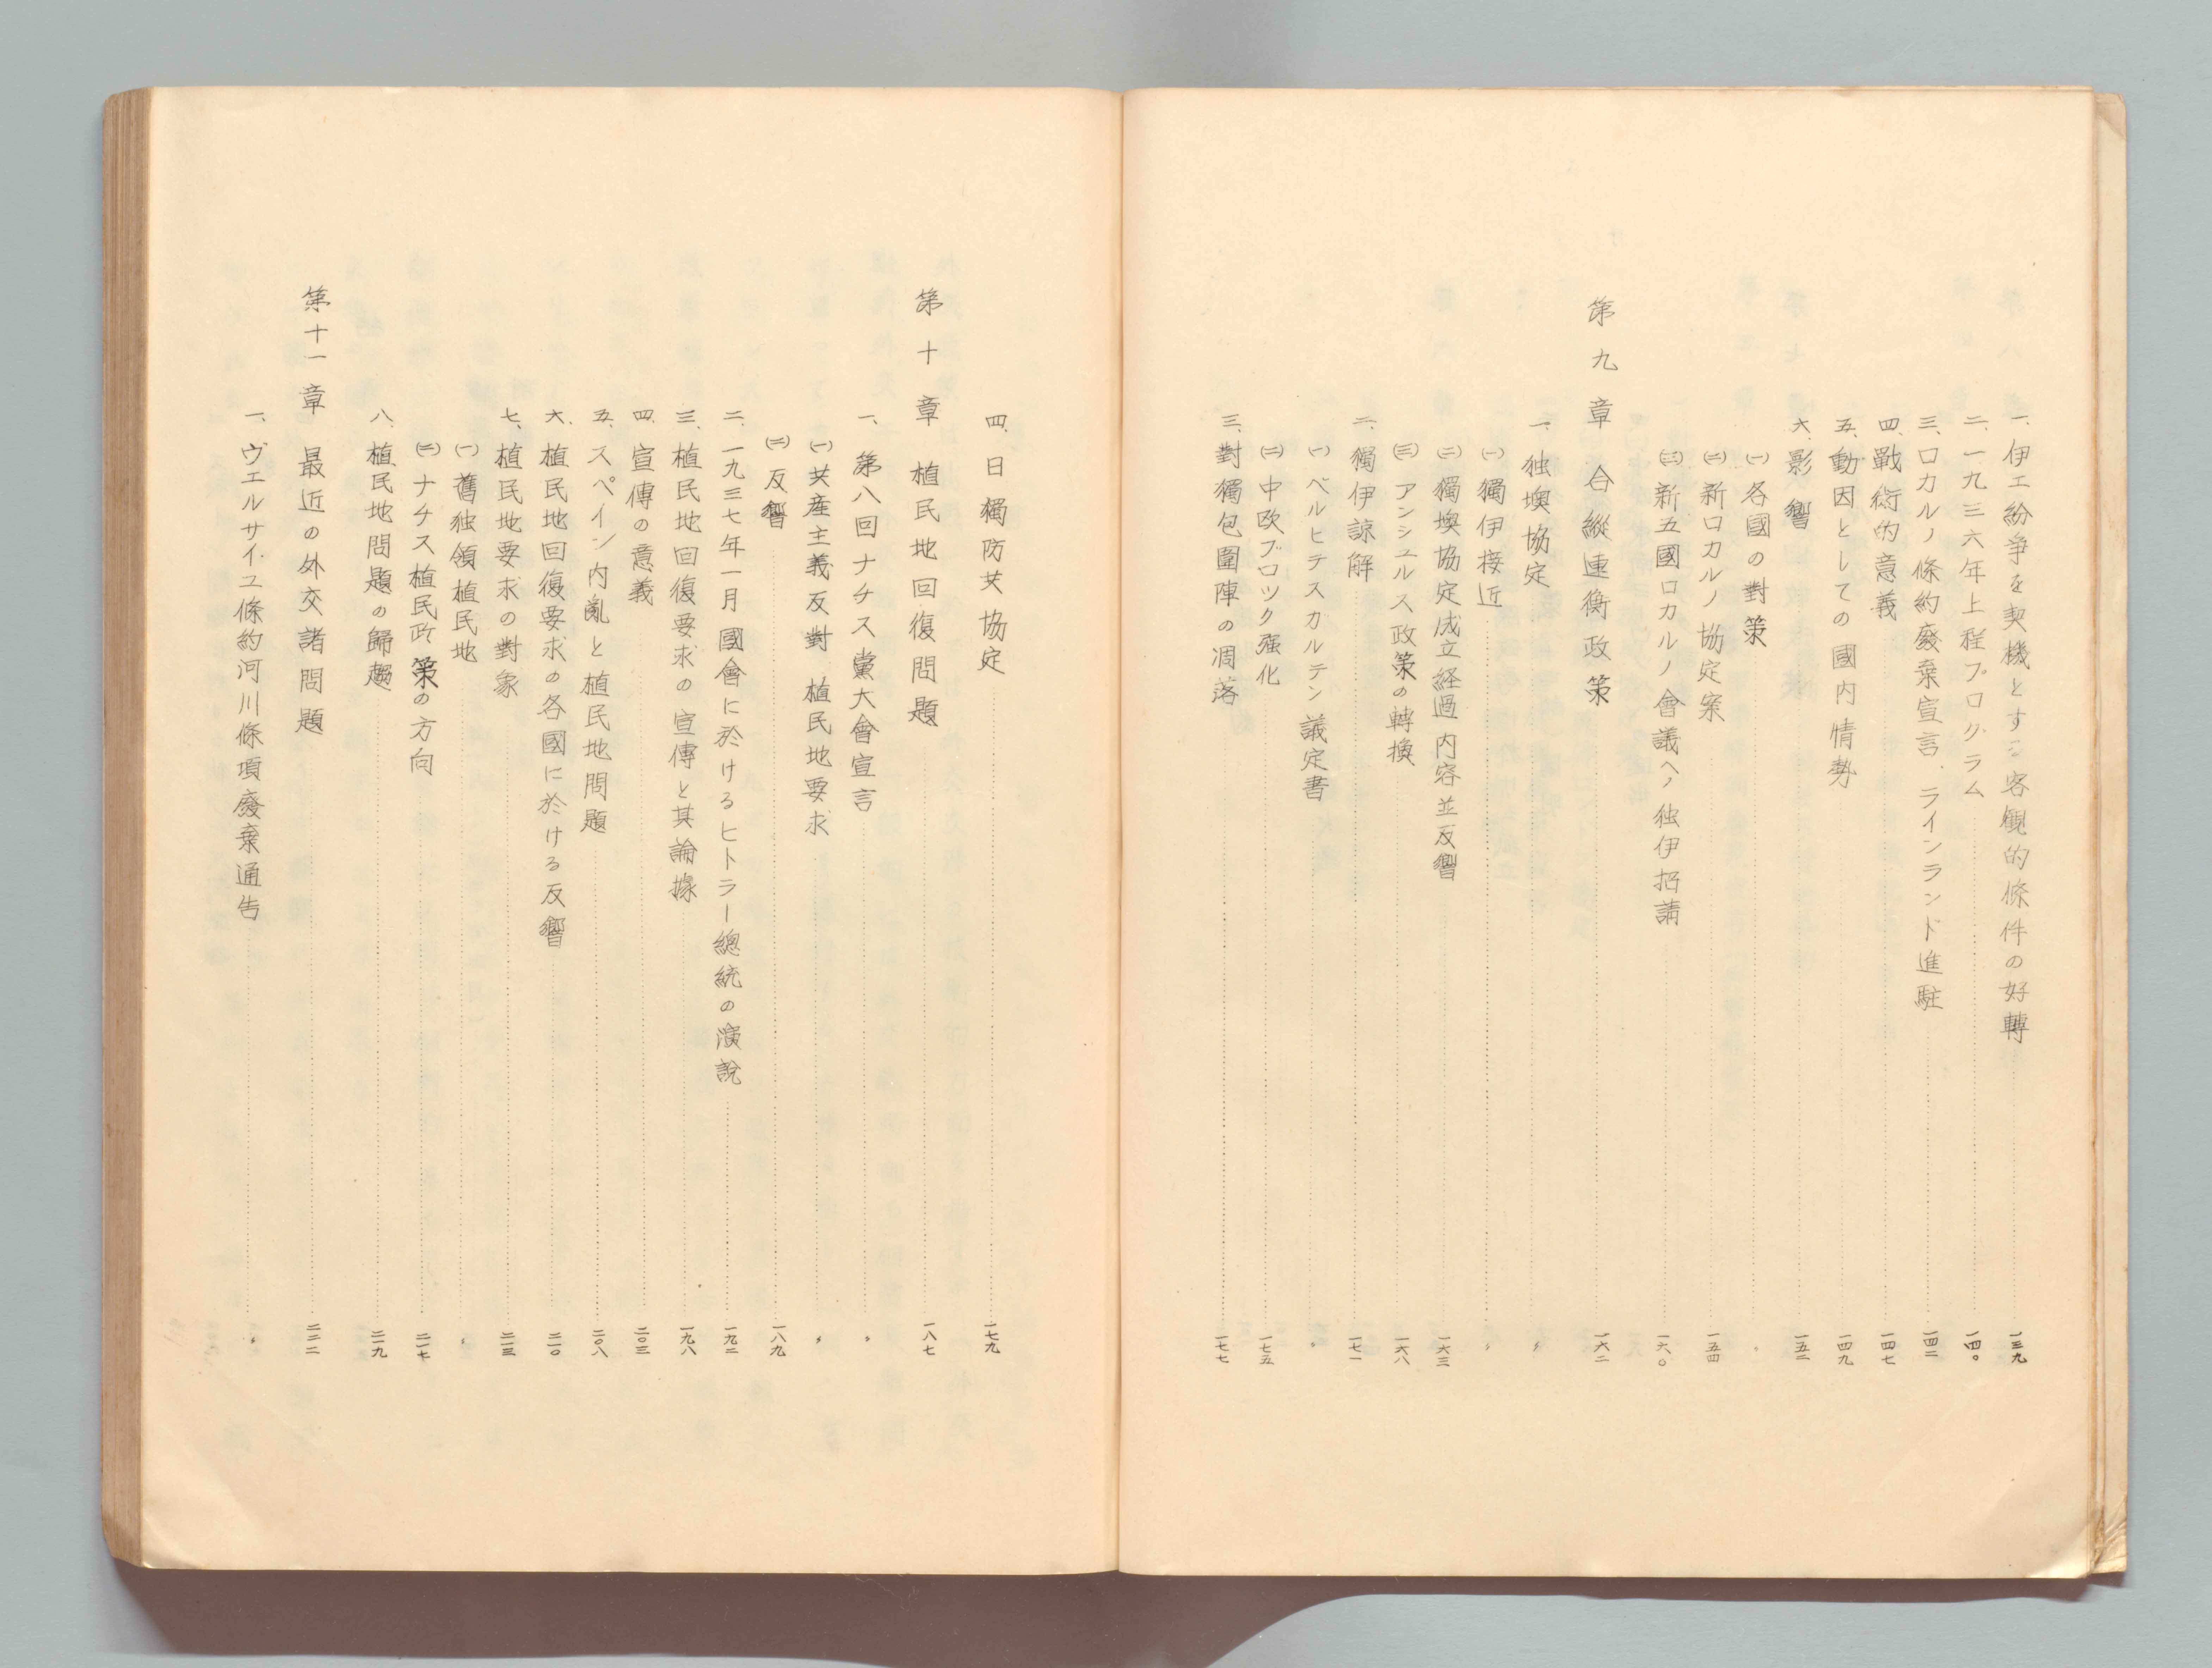 一、伊エ紛爭を契機とする客観的條件の好轉 一三九
二、一九三六年上程プログラム 一四〇
三、ロカルノ條約廢棄宣言、ラインランド進駐 一四二
四、戰術的意義 一四七
五、動因としての國内情勢 一四九
六、影響 一五二
(一)各國の對策 〃
(二)新ロカルノ協定案 一五四
(三)新五國ロカルノ會議ヘノ独伊招請 一六〇
第九章 合縱連衡政策 一六二
一、独墺協定 〃
(一)獨伊接近 〃
(二)獨墺協定成立経過内容並反響 一六三
(三)アンシュルス政策の轉換 一六八
二、獨伊諒解 一七一
(一)ベルヒテスカルテン議定書 〃
(二)中欧ブロック強化 一七五
三、對獨包圍陣の凋落 一七七
四、日獨防共協定 一七九
第十章 植民地回復問題 一八七
一、第八回ナチス黨大會宣言 〃
(一)共産主義反對 植民地要求 〃
(二)反響 一八九
二、一九三七年一月國會に於けるヒトラー總統の演説 一九二
三、植民地回復要求の宣傳と其論據 一九八
四、宣傳の意義 二〇三
五、スペイン内亂と植民地問題 二〇八
六、植民地回復要求の各國に於ける反響 二一〇
七、植民地要求の對象 二一三
(一)舊独領植民地 〃
(二)ナチス植民政策の方向 二一七
八、植民地問題の歸趨 二一九
第十一章 最近の外交諸問題 二二二
一、ヴエルサイユ條約河川條項廢棄通告 〃